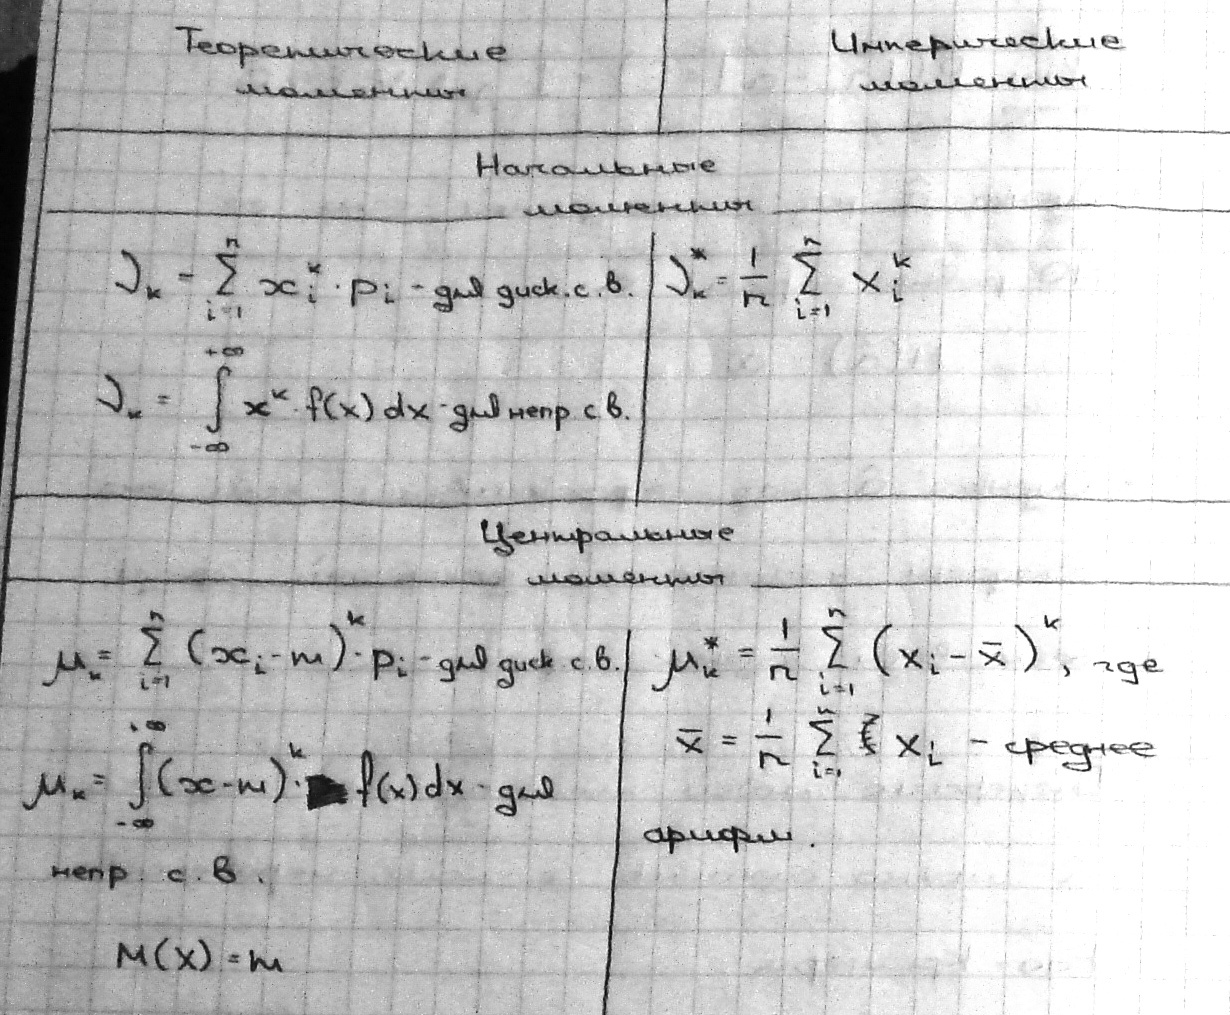 Теоретические
моменты
Имперические
моменты
Начальные
моменты
ν_k = Σ_{i=1}^{n} x_i^k · p_i - для диск. с. в.
ν_k^* = 1/n Σ_{i=1}^{n} x_i^k
ν_k = ∫_{-∞}^{+∞} x^k · f(x) dx - для непр. с. в.
Центральные
моменты
μ_k = Σ_{i=1}^{n} (x_i - m)^k · p_i - для диск. с. в.
μ_k = ∫_{-∞}^{+∞} (x - m)^k · f(x) dx - для
непр. с. в.
M(X) = m
μ_k^* = 1/n Σ_{i=1}^{n} (x_i - x̄)^k, где
x̄ = 1/n Σ_{i=1}^{n} x_i - среднее
арифм.